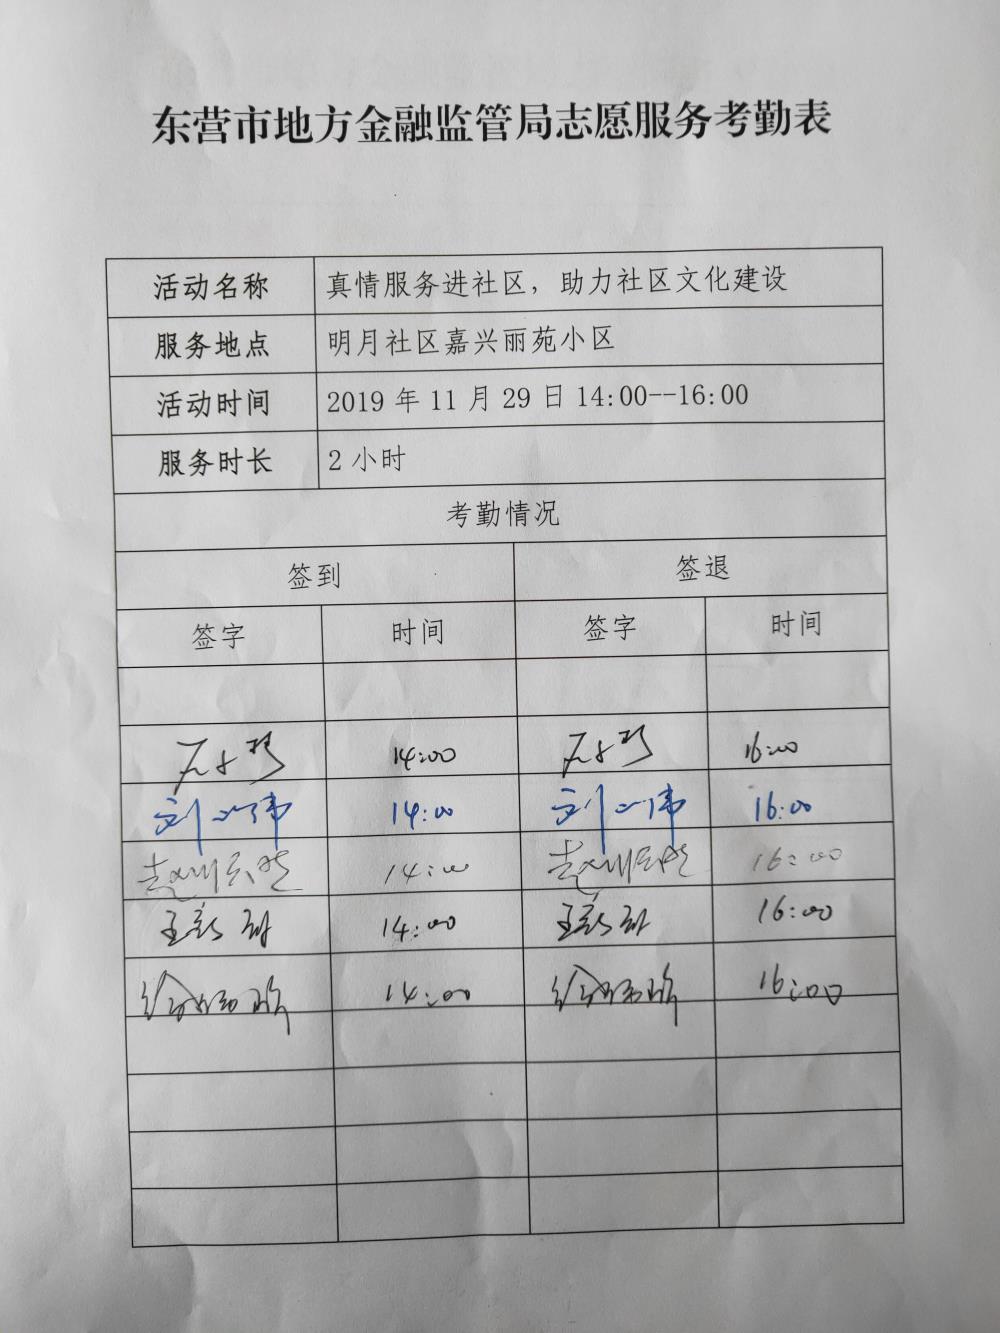 东营市地方金融监管局志愿服务考勤表
活动名称 真情服务进社区，助力社区文化建设
服务地点 明月社区嘉兴丽苑小区
活动时间 2019 年 11 月 29 日 14:00--16:00
服务时长 2 小时
考勤情况
签到 签退
签字 时间 签字 时间
14:00 16:00
刘 伟 14:00 刘 伟 16:00
赵 14:00 赵 16:00
王 14:00 王 16:00
徐 14:00 徐 16:00